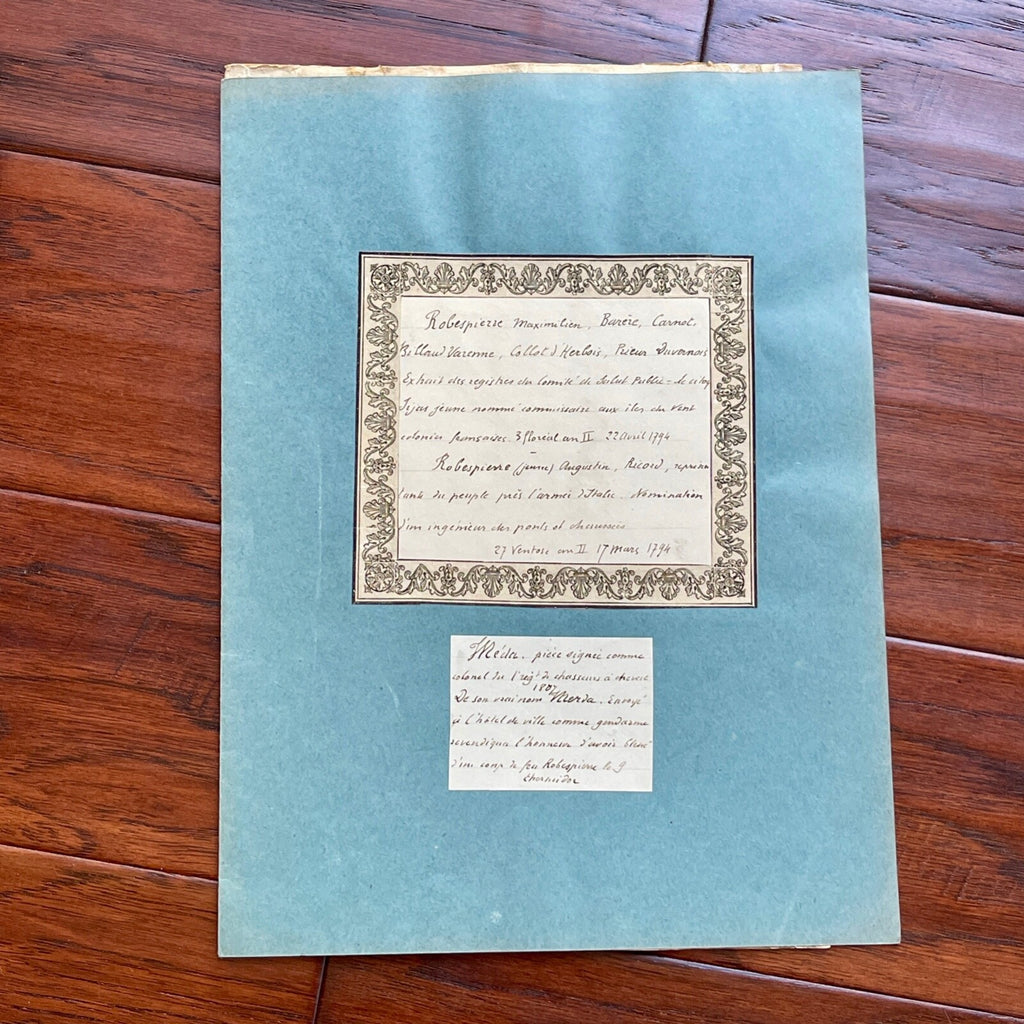 Robespierre Maximilien, Barère, Carnot,
Billaud Varenne, Collot d'Herbois, Prieur Duvernois
Extrait des registres du Comité de Salut Public = le citoy
jeune nommé commissaire aux îles du Vent
colonies françaises 3 floréal an II 22 avril 1794
Robespierre (jeune) Augustin, Ricord, représen
tants du peuple près l'armée d'Italie. Nomination
d'un ingénieur des ponts et chaussées
27 Ventose an II 17 mars 1794
Méda. pièce signée comme
colonel du 1er régt de chasseurs à cheval
1807
De son vrai nom Merda. Envoyé
à l'hôtel de ville comme gendarme
revendiqua l'honneur d'avoir blessé
d'un coup de feu Robespierre le 9
thermidor